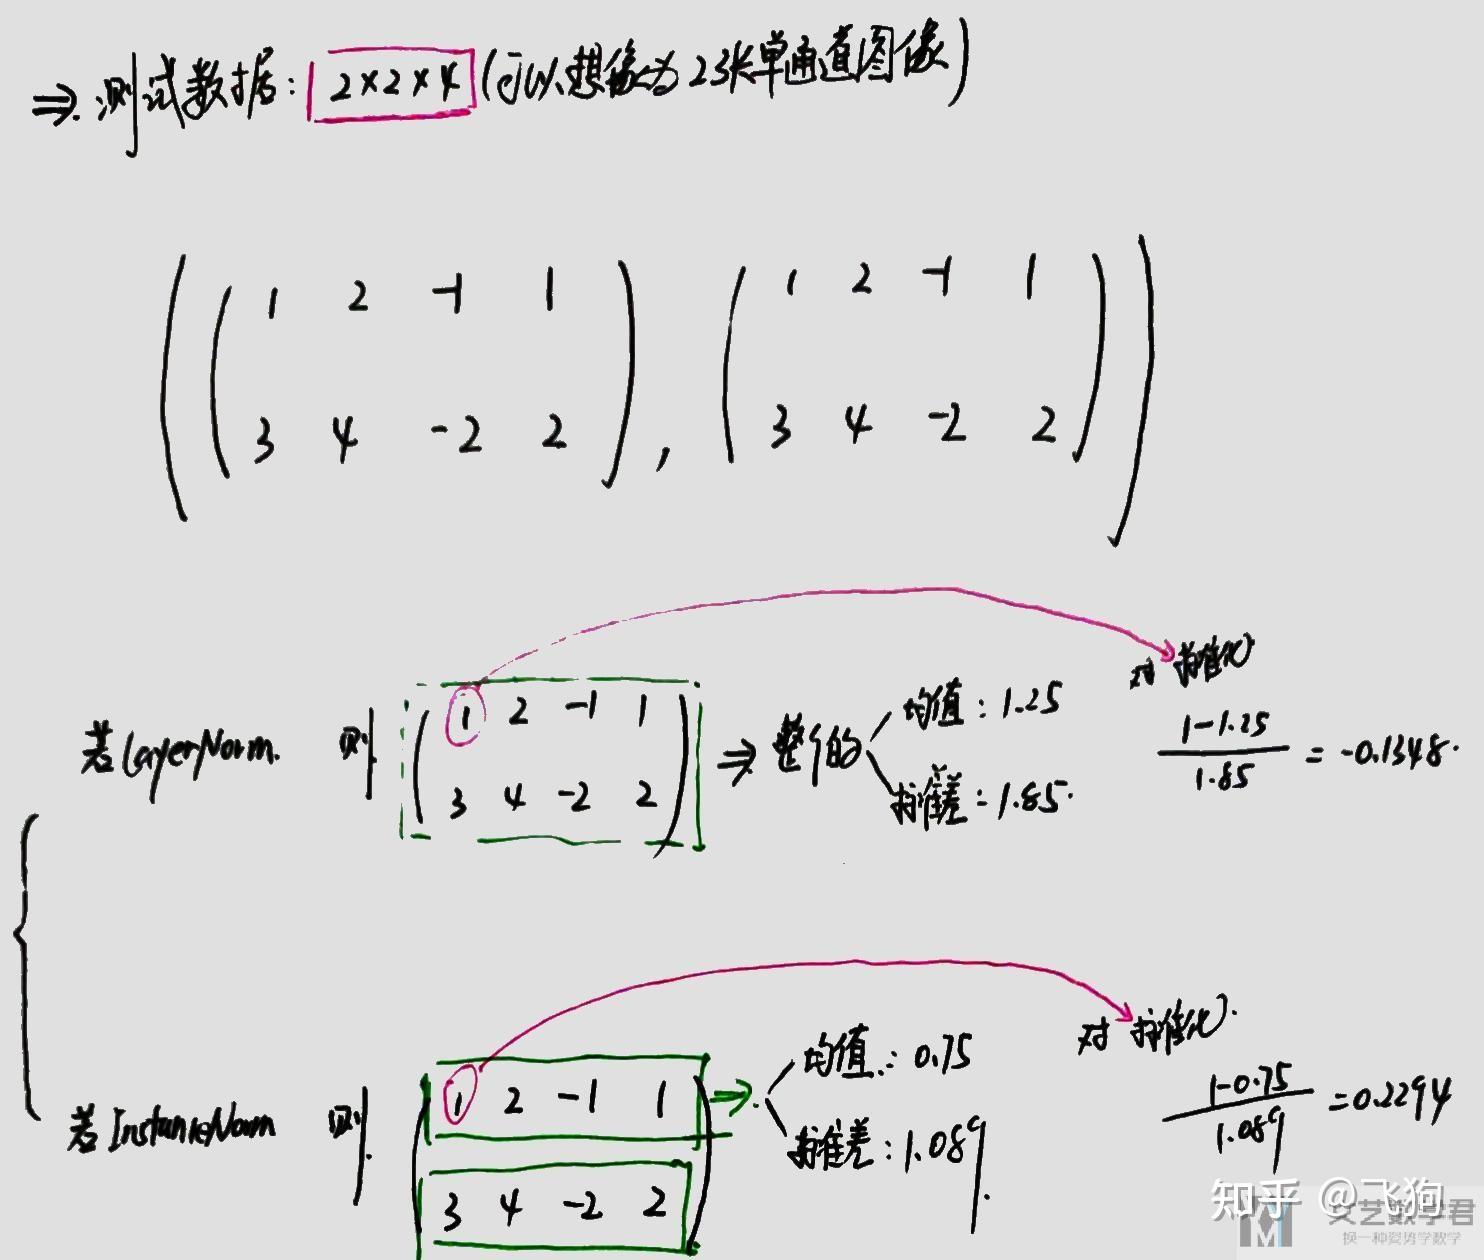 ⇒ 测试数据: 2×2×4 (可以想像为2张单通道图像)
1 2 -1 1 1 2 -1 1
3 4 -2 2 , 3 4 -2 2
对 标准化
若LayerNorm. 则 1 2 -1 1 ⇒ 整个的 均值: 1.25 (1-1.25)/1.85 = -0.1348.
3 4 -2 2 标准差: 1.85.
对 标准化.
若InstanceNorm 则 1 2 -1 1 → 均值: 0.75 (1-0.75)/1.089 = 0.2294
3 4 -2 2 标准差: 1.089.
知乎 @飞狗
文艺数学君
换一种姿势学数学